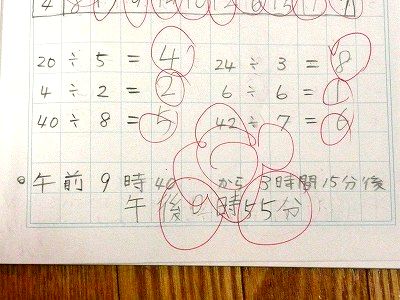 20 ÷ 5 = 4
24 ÷ 3 = 8
4 ÷ 2 = 2
6 ÷ 6 = 1
40 ÷ 8 = 5
42 ÷ 7 = 6
午前9時40 から3時間15分後
午後 時55分